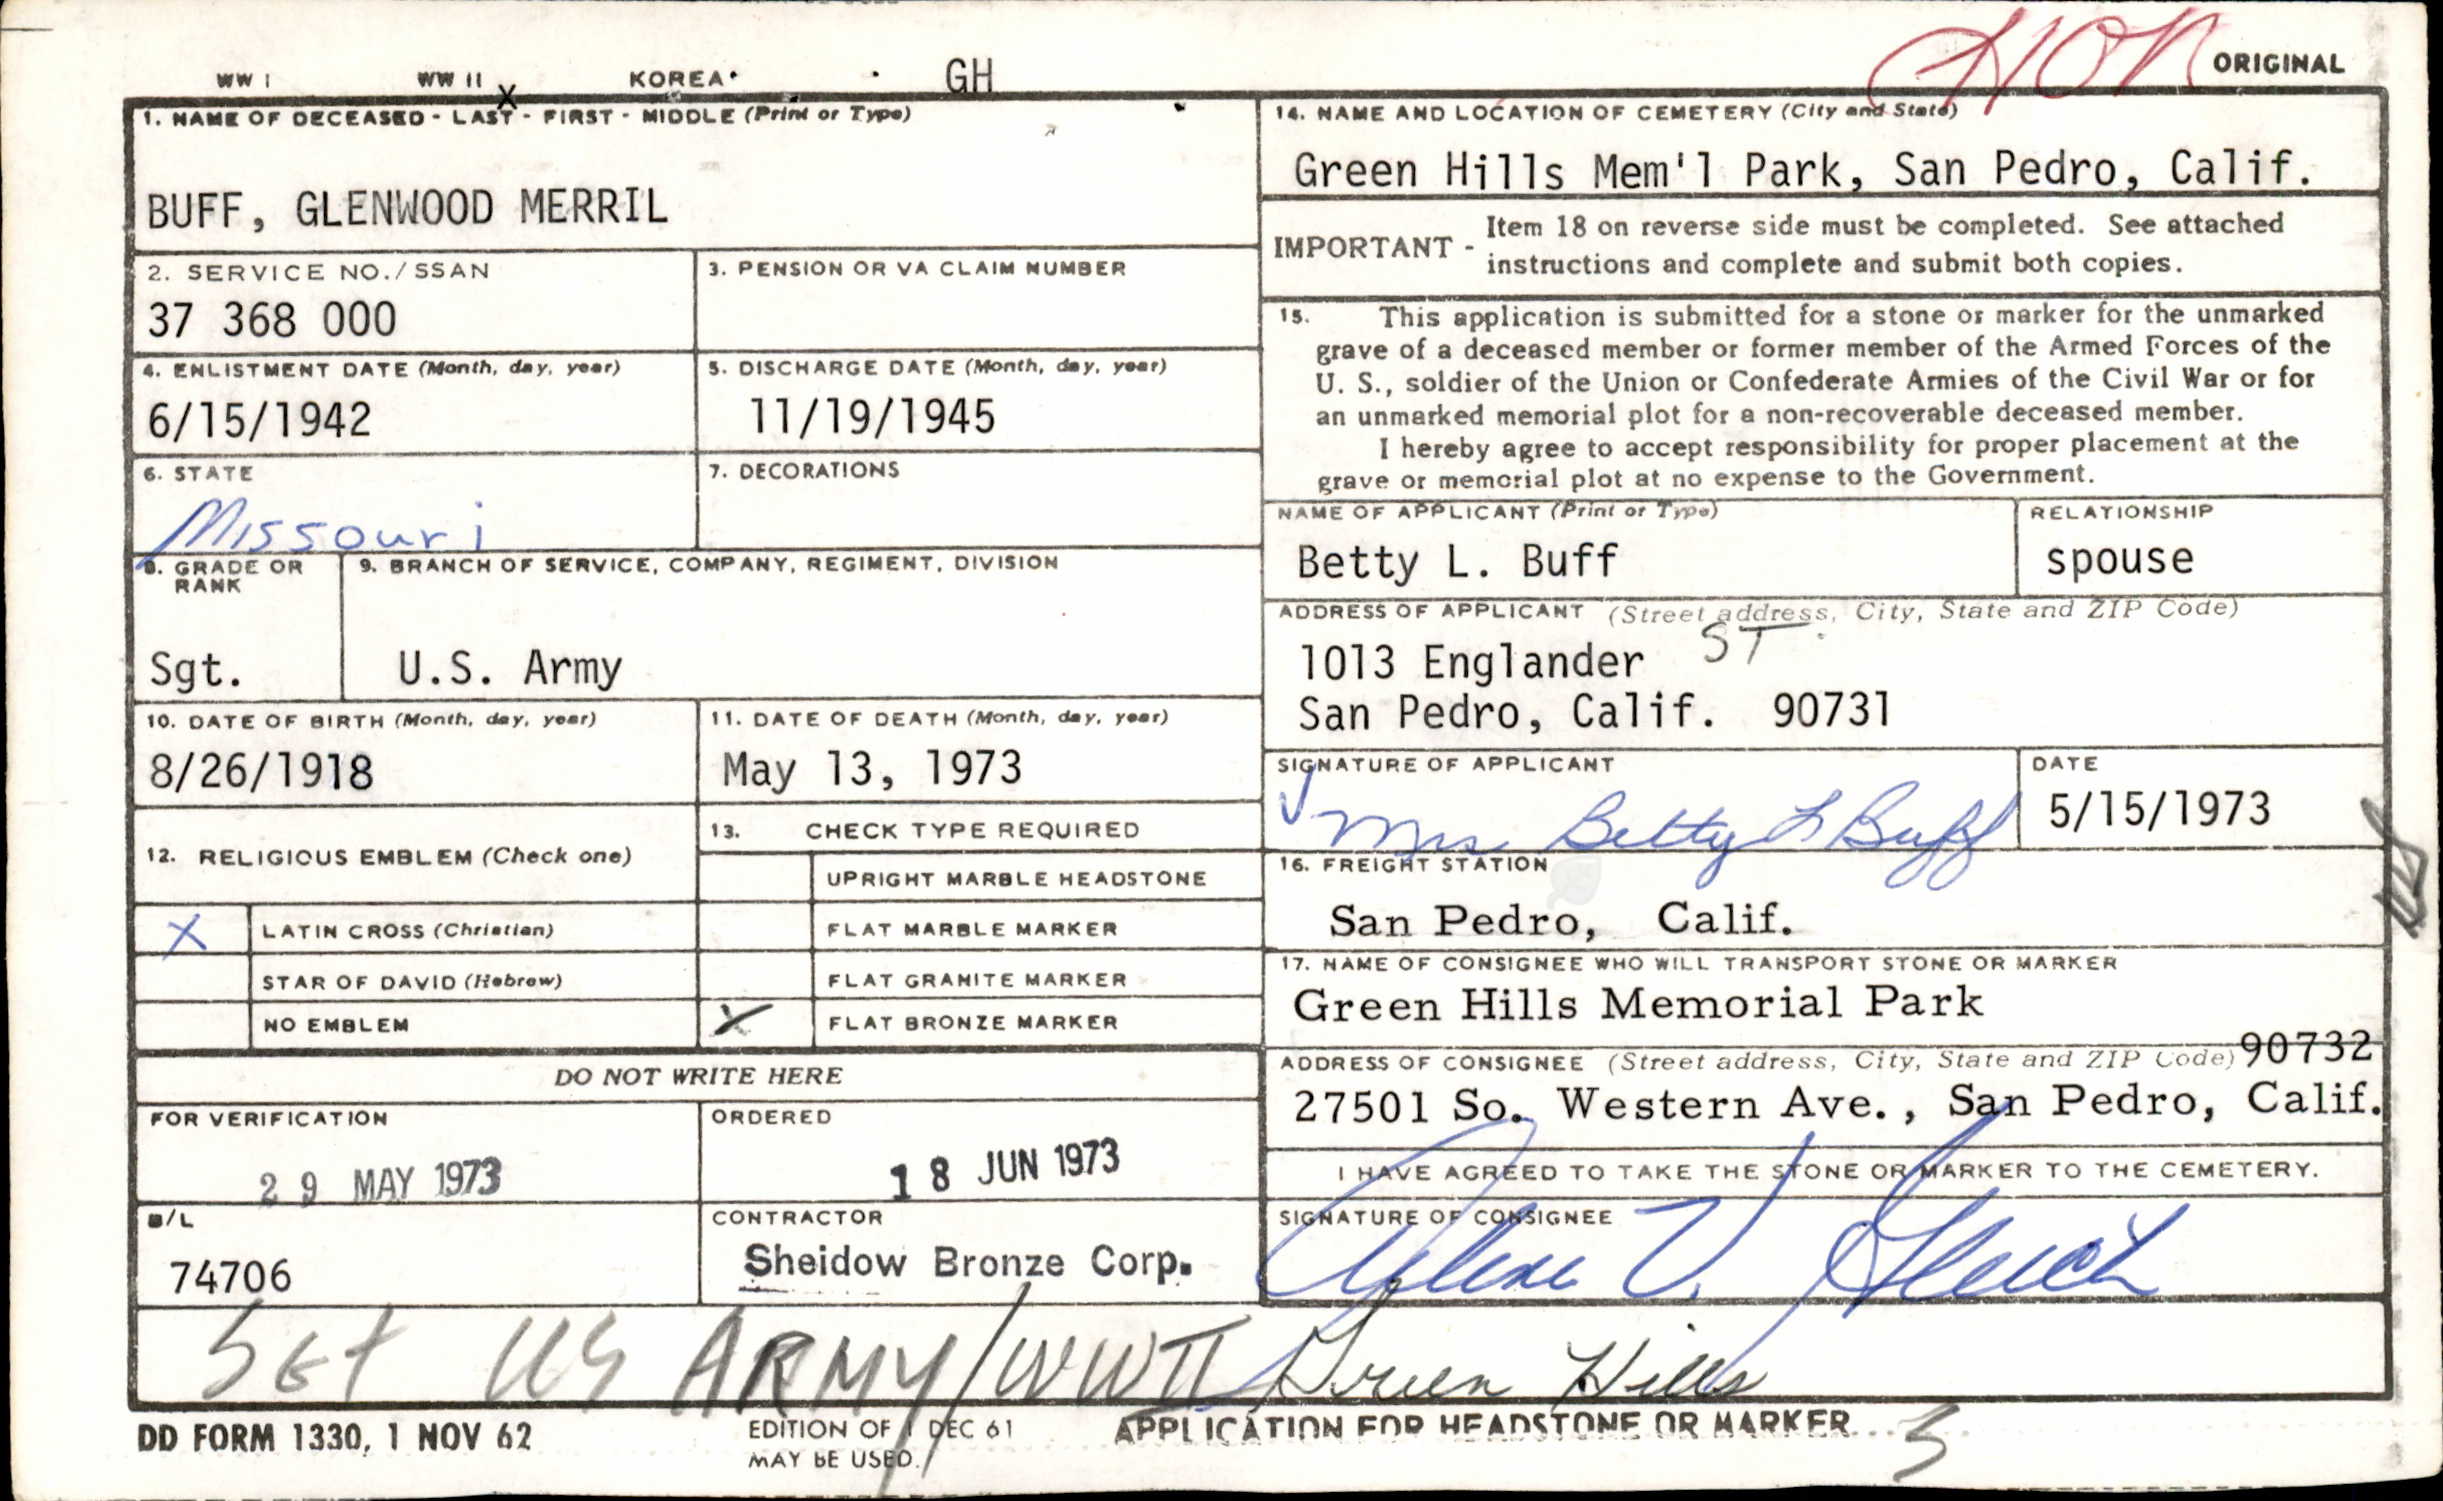 HON
ORIGINAL
WW I WW II X KOREA GH
1. NAME OF DECEASED - LAST - FIRST - MIDDLE (Print or Type)
BUFF, GLENWOOD MERRIL
2. SERVICE NO./SSAN
37 368 000
3. PENSION OR VA CLAIM NUMBER
4. ENLISTMENT DATE (Month, day, year)
6/15/1942
5. DISCHARGE DATE (Month, day, year)
11/19/1945
6. STATE
Missouri
7. DECORATIONS
8. GRADE OR
RANK
Sgt.
9. BRANCH OF SERVICE, COMPANY, REGIMENT, DIVISION
U.S. Army
10. DATE OF BIRTH (Month, day, year)
8/26/1918
11. DATE OF DEATH (Month, day, year)
May 13, 1973
12. RELIGIOUS EMBLEM (Check one)
X LATIN CROSS (Christian)
STAR OF DAVID (Hebrew)
NO EMBLEM
13. CHECK TYPE REQUIRED
UPRIGHT MARBLE HEADSTONE
FLAT MARBLE MARKER
FLAT GRANITE MARKER
X FLAT BRONZE MARKER
DO NOT WRITE HERE
FOR VERIFICATION
29 MAY 1973
ORDERED
18 JUN 1973
B/L
74706
CONTRACTOR
Sheidow Bronze Corp.
14. NAME AND LOCATION OF CEMETERY (City and State)
Green Hills Mem'l Park, San Pedro, Calif.
IMPORTANT - Item 18 on reverse side must be completed. See attached
instructions and complete and submit both copies.
15. This application is submitted for a stone or marker for the unmarked
grave of a deceased member or former member of the Armed Forces of the
U. S., soldier of the Union or Confederate Armies of the Civil War or for
an unmarked memorial plot for a non-recoverable deceased member.
I hereby agree to accept responsibility for proper placement at the
grave or memorial plot at no expense to the Government.
NAME OF APPLICANT (Print or Type)
Betty L. Buff
RELATIONSHIP
spouse
ADDRESS OF APPLICANT (Street address, City, State and ZIP Code)
1013 Englander ST
San Pedro, Calif. 90731
SIGNATURE OF APPLICANT
Mrs Betty L Buff
DATE
5/15/1973
16. FREIGHT STATION
San Pedro, Calif.
17. NAME OF CONSIGNEE WHO WILL TRANSPORT STONE OR MARKER
Green Hills Memorial Park
ADDRESS OF CONSIGNEE (Street address, City, State and ZIP Code) 90732
27501 So. Western Ave., San Pedro, Calif.
I HAVE AGREED TO TAKE THE STONE OR MARKER TO THE CEMETERY.
SIGNATURE OF CONSIGNEE
V.
Sgt US ARMY/WWII Green Hills
DD FORM 1330, 1 NOV 62
EDITION OF 1 DEC 61
MAY BE USED.
APPLICATION FOR HEADSTONE OR MARKER